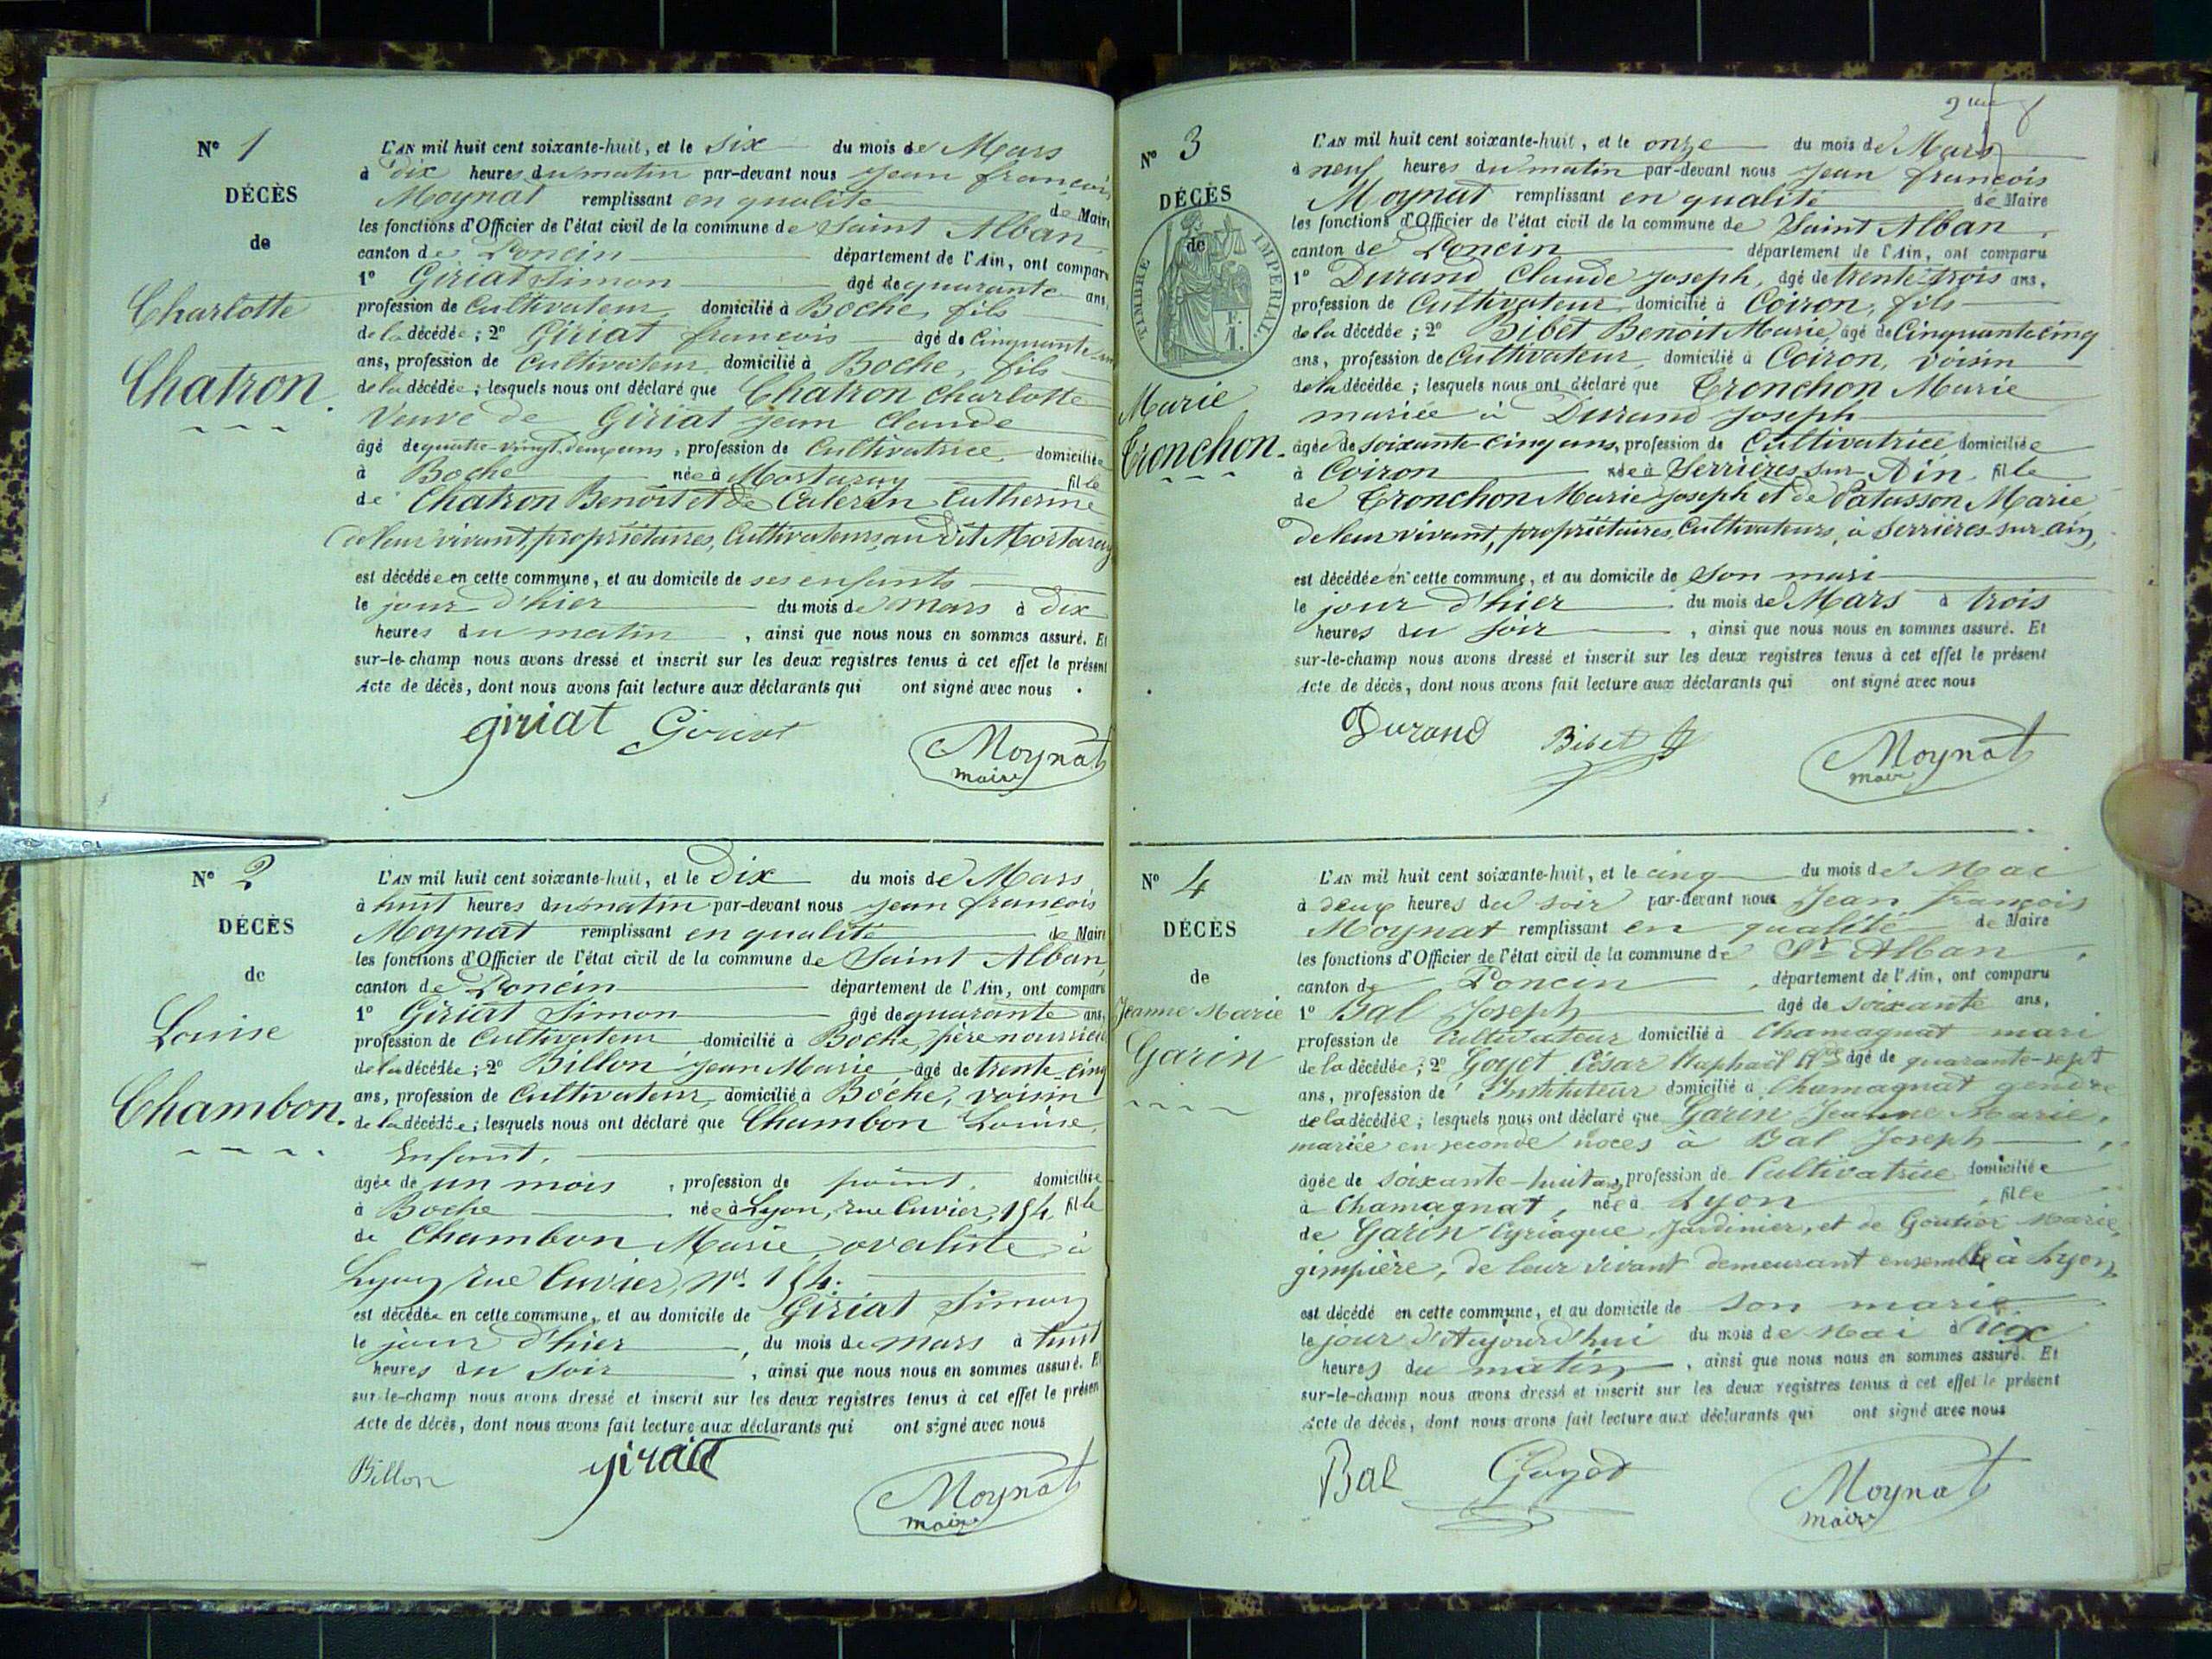 N° 1
DÉCÈS
de
Charlotte
Chatron.
L'AN mil huit cent soixante-huit, et le six du mois de Mars
à dix heures du matin par-devant nous Jean françois
Moynat remplissant en qualité de Maire
les fonctions d'Officier de l'état civil de la commune de Saint Alban
canton de Poncin département de l'Ain, ont comparu
1° Giriat Simon âgé de quarante ans,
profession de Cultivateur domicilié à Boche, fils
de la décédée ; 2° Giriat françois âgé de Cinquante
ans, profession de Cultivateur domicilié à Boche, fils
de la décédée ; lesquels nous ont déclaré que Chatron Charlotte
Veuve de Giriat Jean Claude
âgé de quatre-vingt deux ans, profession de Cultivatrice domiciliée
à Boche née à Mortaray fille
de Chatron Benoit et de Caterin Catherine
de leur vivant, propriétaires, Cultivateurs au dit Mortaray
est décédée en cette commune, et au domicile de ses enfants
le jour d'hier du mois de mars à dix
heures du matin, ainsi que nous nous en sommes assuré. Et
sur-le-champ nous avons dressé et inscrit sur les deux registres tenus à cet effet le présent
Acte de décès, dont nous avons fait lecture aux déclarants qui ont signé avec nous.
giriat Giriat Moynat
maire
N° 2
DÉCÈS
de
Louise
Chambon.
L'AN mil huit cent soixante-huit, et le Dix du mois de Mars
à huit heures du matin par-devant nous Jean françois
Moynat remplissant en qualité de Maire
les fonctions d'Officier de l'état civil de la commune de Saint Alban,
canton de Poncin département de l'Ain, ont comparu
1° Giriat Simon âgé de quarante ans,
profession de Cultivateur domicilié à Boche, père nourricier
de la décédée ; 2° Billon Jean Marie âgé de trente-cinq
ans, profession de Cultivateur domicilié à Boche, voisin
de la décédée ; lesquels nous ont déclaré que Chambon Louise,
Enfant.
âgée de un mois, profession de point. domiciliée
à Boche née à Lyon, rue Cuvier, 154 fille
de Chambon Marie, ovaliste à
Lyon, rue Cuvier, N° 154.
est décédée en cette commune, et au domicile de Giriat Simon
le jour d'hier, du mois de mars à huit
heures du soir, ainsi que nous nous en sommes assuré. Et
sur-le-champ nous avons dressé et inscrit sur les deux registres tenus à cet effet le présent
Acte de décès, dont nous avons fait lecture aux déclarants qui ont signé avec nous
Billon giriat Moynat
maire
N° 3
DÉCÈS
de
TIMBRE IMPÉRIAL
Marie
Tronchon.
L'AN mil huit cent soixante-huit, et le onze du mois de Mars
à neuf heures du matin par-devant nous Jean françois
Moynat remplissant en qualité de Maire
les fonctions d'Officier de l'état civil de la commune de Saint Alban,
canton de Poncin département de l'Ain, ont comparu
1° Durand Claude Joseph, âgé de trente-trois ans,
profession de Cultivateur domicilié à Coiron, fils
de la décédée ; 2° Bibet Benoit Marie, âgé de Cinquante cinq
ans, profession de Cultivateur domicilié à Coiron, voisin
de la décédée ; lesquels nous ont déclaré que Tronchon Marie
mariée à Durand Joseph
âgée de soixante-cinq ans, profession de Cultivatrice, domiciliée
à Coiron née à Serrières sur Ain fille
de Tronchon Marie Joseph et de Patasson Marie
de leur vivant, propriétaires, Cultivateurs, à Serrières-sur-ain,
est décédée en cette commune, et au domicile de Son mari
le jour d'hier du mois de Mars à trois
heures du soir, ainsi que nous nous en sommes assuré. Et
sur-le-champ nous avons dressé et inscrit sur les deux registres tenus à cet effet le présent
Acte de décès, dont nous avons fait lecture aux déclarants qui ont signé avec nous
Durand Bibet Moynat
maire
N° 4
DÉCÈS
de
Jeanne Marie
Garin
L'AN mil huit cent soixante-huit, et le cinq du mois de Mai
à deux heures du soir par-devant nous Jean françois
Moynat remplissant en qualité de Maire
les fonctions d'Officier de l'état civil de la commune de St Alban,
canton de Poncin, département de l'Ain, ont comparu
1° Bal Joseph âgé de soixante ans,
profession de Cultivateur domicilié à Chamagnat mari
de la décédée ; 2° Goyet César Raphaël âgé de quarante-sept
ans, profession d'Instituteur domicilié à Chamagnat gendre
de la décédée ; lesquels nous ont déclaré que Garin Jeanne Marie,
mariée en seconde noces à Bal Joseph
âgée de soixante-huit ans, profession de Cultivatrice domiciliée
à Chamagnat, née à Lyon, fille
de Garin Cyriaque, Jardinier, et de Goutior Marie,
gimpière, de leur vivant demeurant ensemble à Lyon,
est décédé en cette commune, et au domicile de son marie
le jour d'Aujourd'hui du mois de Mai à dix
heures du matin, ainsi que nous nous en sommes assuré. Et
sur-le-champ nous avons dressé et inscrit sur les deux registres tenus à cet effet le présent
Acte de décès, dont nous avons fait lecture aux déclarants qui ont signé avec nous
Bal Goyet Moynat
maire